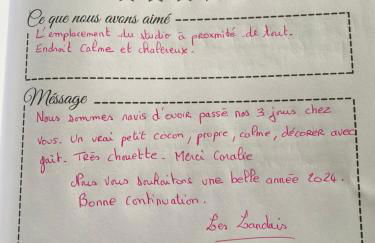 Ce que nous avons aimé
L'emplacement du studio à proxmité de tout.
Endroit calme et chaleureux.
Méssage
Nous sommes ravis d'avoir passé nos 3 jours chez
vous. Un vrai petit cocon, propre, calme, décorer avec
goût. Très chouette. Merci Coralie
Nous vous souhaitons une belle année 2024.
Bonne continuation.
Les Landais